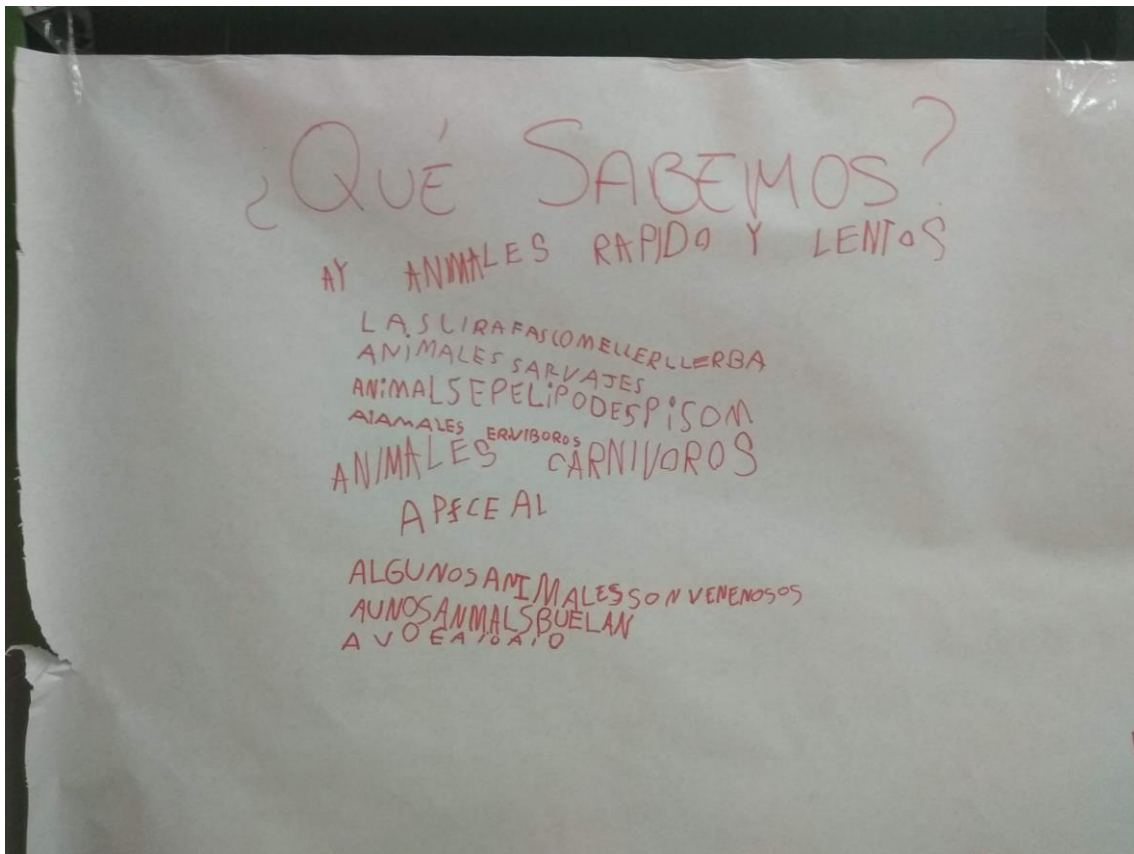 ¿QUÉ SABEMOS?
AY ANIMALES RAPIDO Y LENTOS
LASLIRAFASCOMELLERLLERBA
ANIMALES SARVAJES
ANIMALSEPELIPODESPISOM
AIAMALES ERVIBOROS
ANIMALES CARNIVOROS
APECEAL
ALGUNOSANIMALESSONVENENOSOS
AUNOSANMALSBUELAN